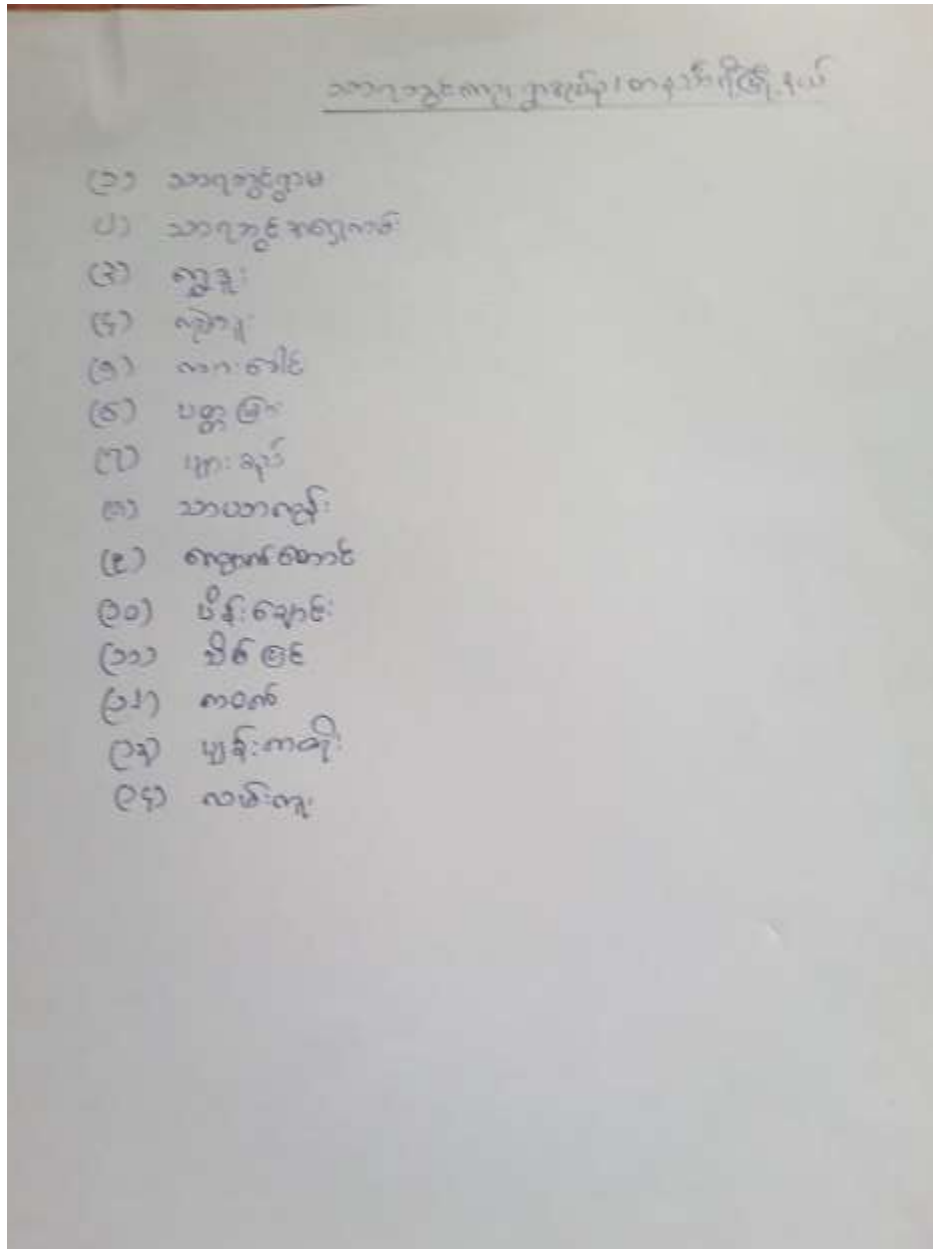 သာရဘွင်ကျေးရွာအုပ်စု၊ တနင်္သာရီမြို့နယ်
(၁) သာရဘွင်ရွာမ
(၂) သာရဘွင်အရှေ့ကမ်း
(၃) ရွှေဒူး
(၄)
(၅)
(၆) ပတ္တမြား
(၇) ဖျားချည်
(၈) သာယာလှန်း
(၉) ကျောက်တောင်
(၁၀) ပိန်းချောင်း
(၁၁) သစ်မြင်
(၁၂) ကဝက်
(၁၃) ပျဉ်းကတိုး
(၁၄) လမ်းကူး